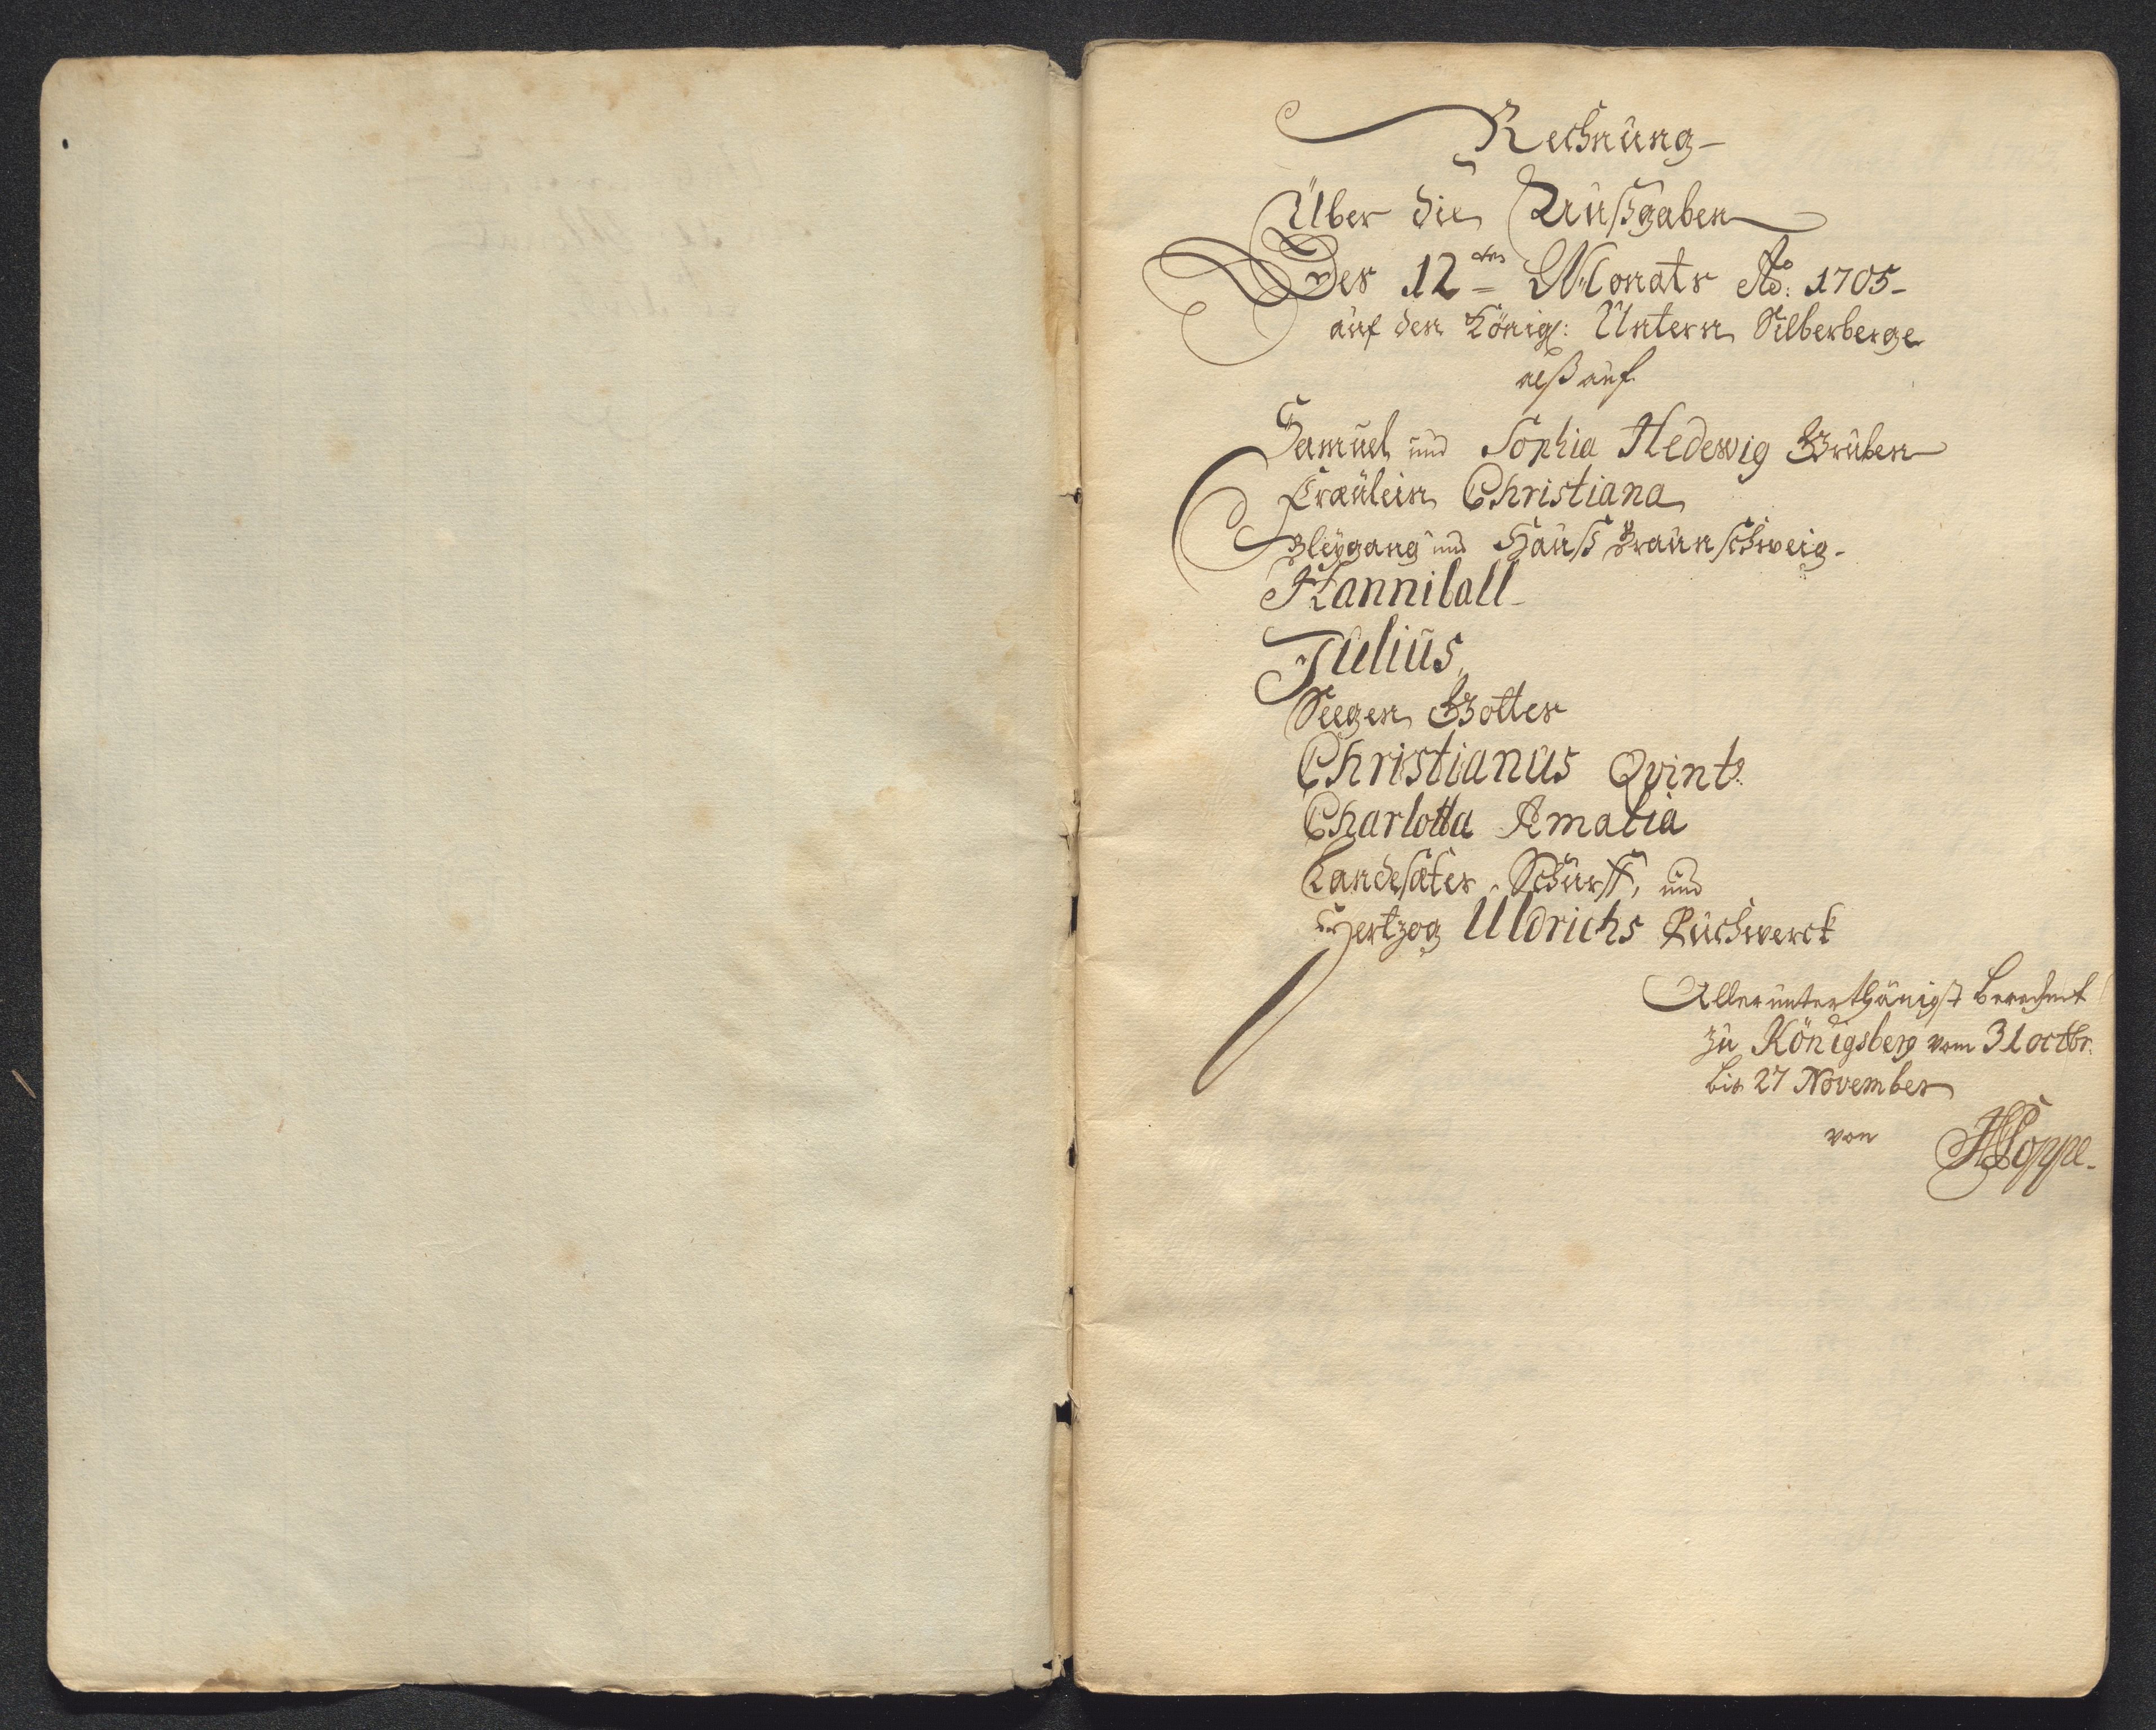 Rechnung
Über die Außgaben
Des 12ten Monats Ao: 1705
auf den König: Untern Silberberge
alß auf
Samuel und Sophia Hedewig Gruben
Fräulein Christiana
Bleygang und Hauß Braunschweig
Hanniball
Julius
Seegen Gottes
Christianus Qvint9
Charlotta Amalia
Landesäter Schurff, und
Hertzog Uldrichs Puchwerck
Allerunterthänigst berechnet
zu Königsberg vom 31 octbr.
bis 27 November
von HPoppe